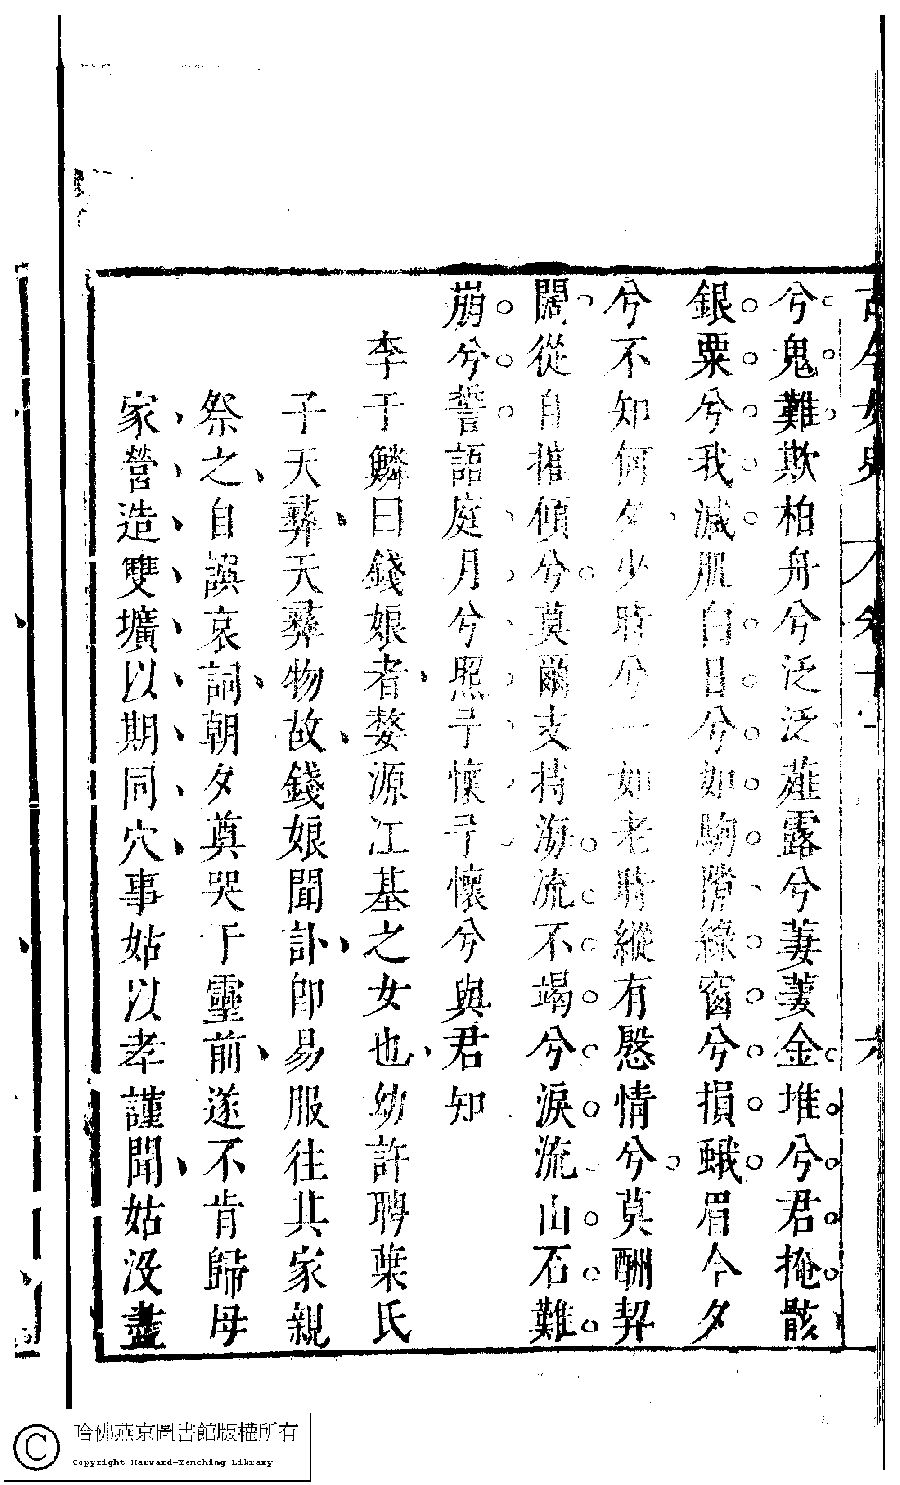 古今女史 卷十一 六
兮鬼難欺柏舟兮泛泛薤露兮萋萋金堆兮君掩骸
銀粟兮我減肌白日兮如駒隙綠窗兮損蛾眉今夕
兮不知何夕少時兮一如老時縱有慇情兮莫酬契
闊從自摧傾兮莫爾支持海流不竭兮淚流山石難
崩兮誓語庭月兮照予懷予懷兮與君知
李于鱗曰錢娘者婺源江基之女也幼許聘葉氏
子天彝天彝物故錢娘聞訃卽易服往其家親
祭之自誤哀詞朝夕奠哭于靈前遂不肯歸母
家營造雙壙以期同穴事姑以孝謹聞姑沒盡
哈佛燕京圖書館版權所有
Copyright Harvard-Yenching Library